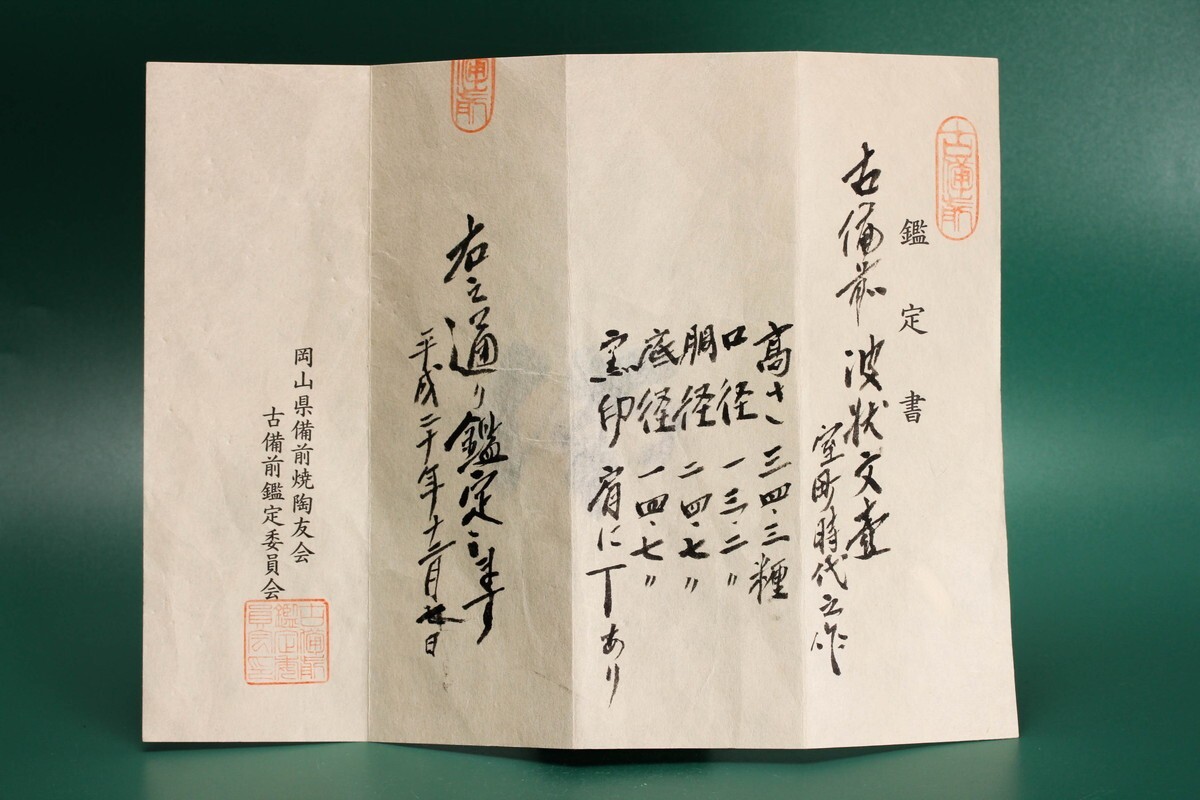 古備前
鑑定書
古備前 波状文壷
室町時代之作
高さ 三四・三糎
口径 一三・二〃
胴径 二四・七〃
底径 一四・七〃
窯印 肩に丁あり
備前
右之通り鑑定します
平成二十年十二月廿日
岡山県備前焼陶友会
古備前鑑定委員会
古備前鑑定委員会之印